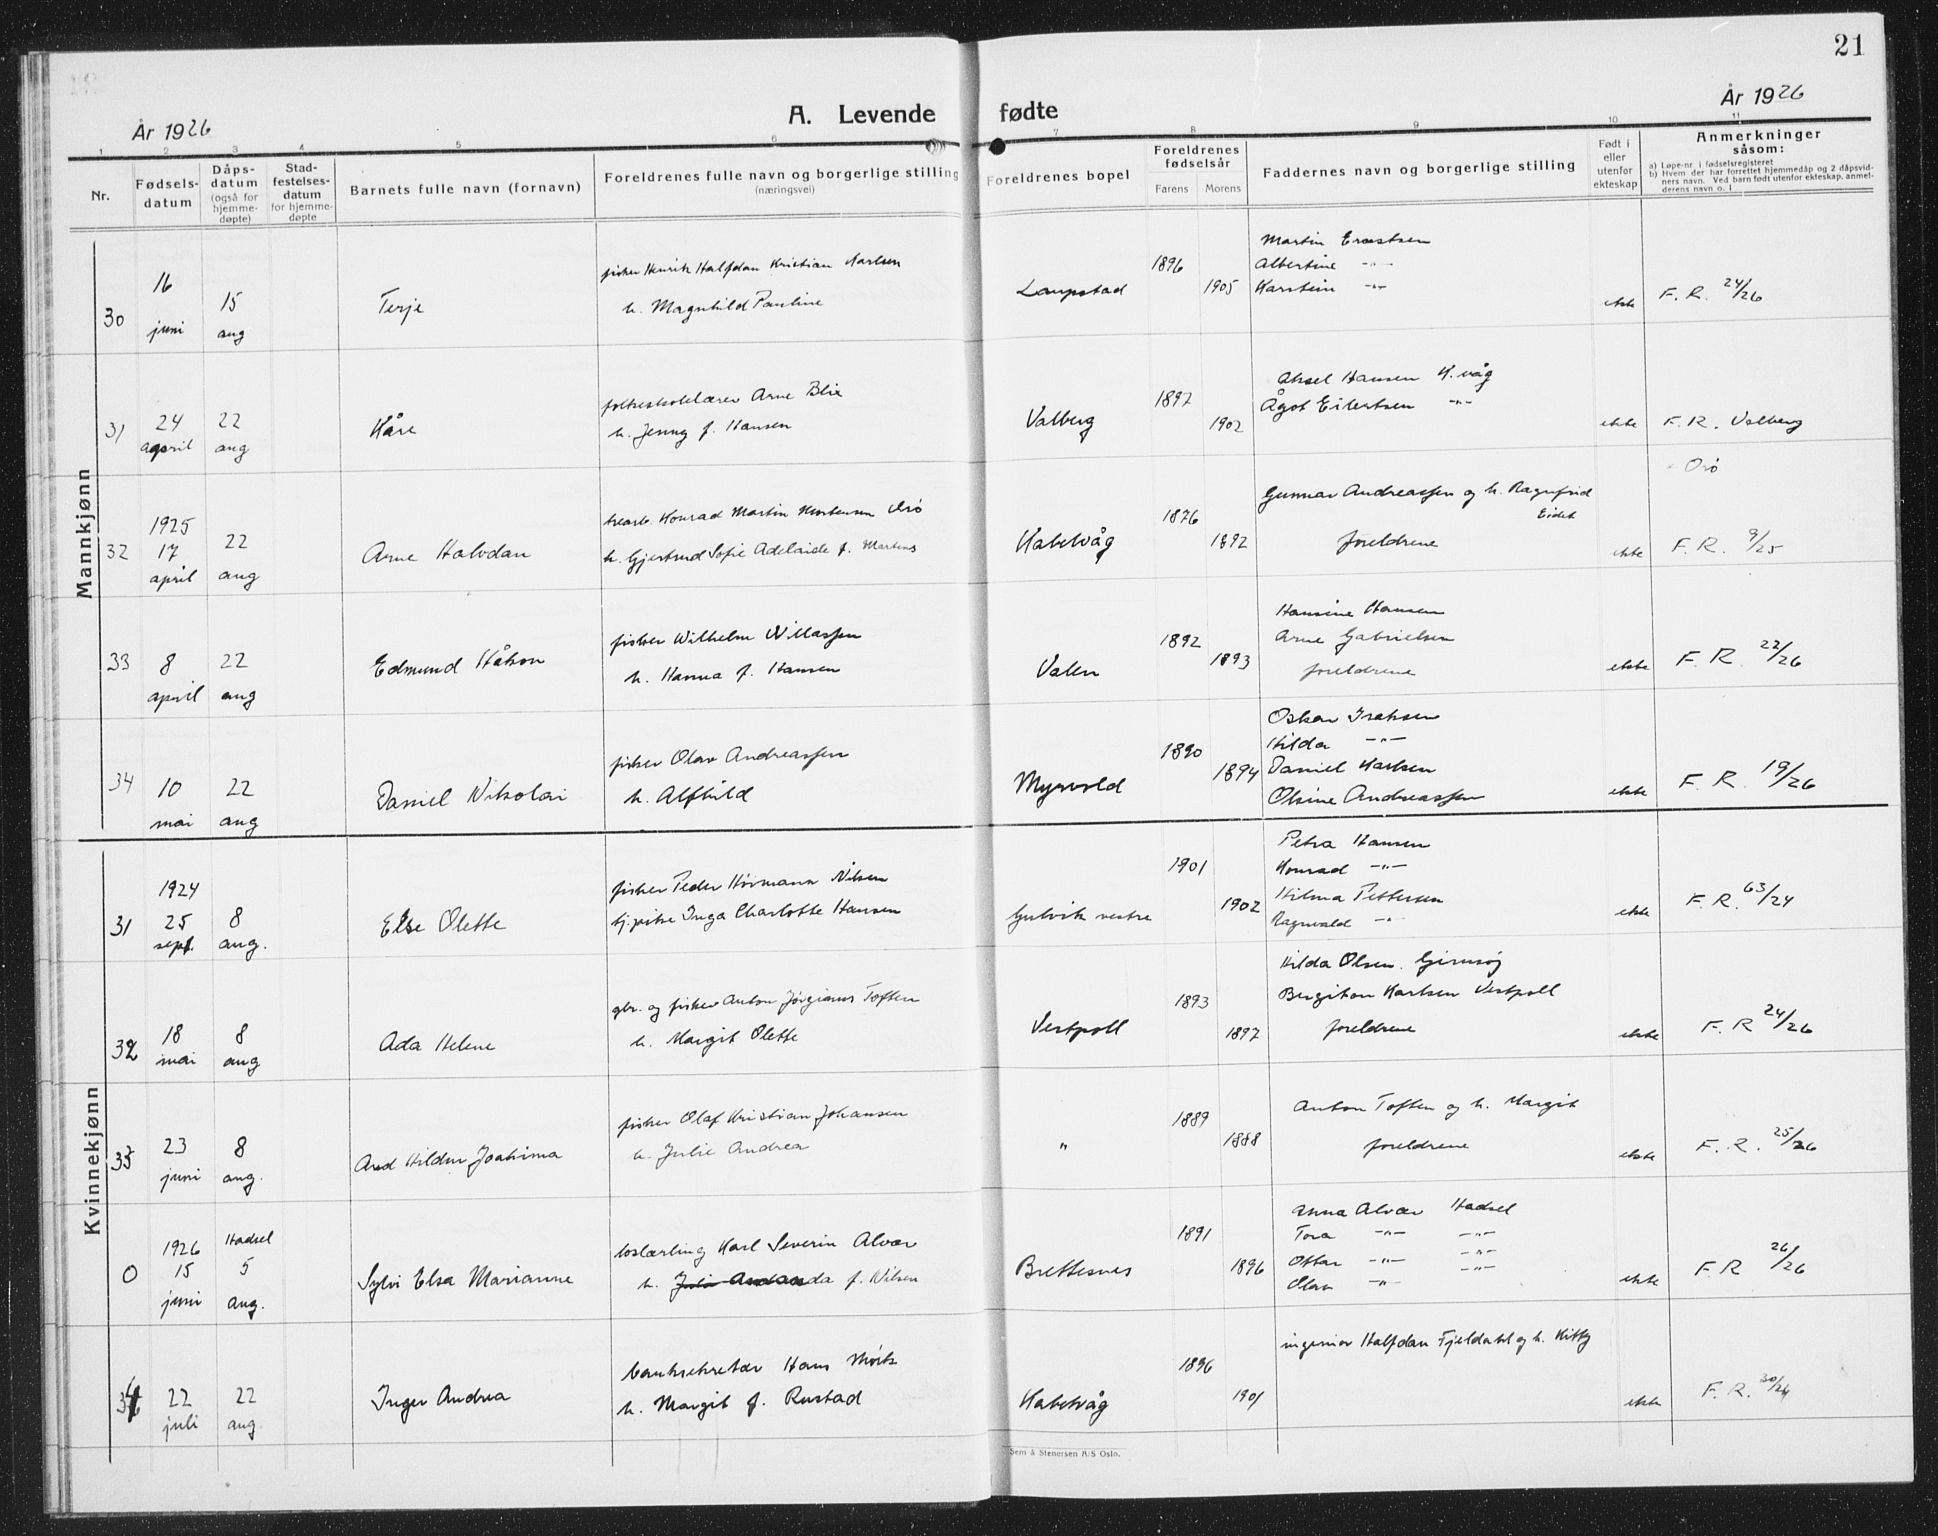 21
År 1926
A. Levende fødte
År 1926
1 2 3 4 5 6 7 8 9 10 11
Nr.
Fødsels-
datum
Dåps-
datum
(også for
hjemme-
døpte)
Stad-
festelses-
datum
for hjemme-
døpte
Barnets fulle navn (fornavn)
Foreldrenes fulle navn og borgerlige stilling
(næringsvei)
Foreldrenes bopel
Foreldrenes
fødselsår
Farens Morens
Faddernes navn og borgerlige stilling
Født i
eller
utenfor
ekteskap
Anmerkninger
såsom:
a) Løpe-nr. i fødselsregisteret
b) Hvem der har forrettet hjemmedåp og 2 dåpsvid-
ners navn. Ved barn født utenfor ekteskap, anmel-
derens navn o. l
Mannkjønn
30
16
juni
15
aug
Terje
fisker Henrik Halfdan Kristian Karlsen
h. Magnhild Pauline
Laupstad
1896
1905
Martin
Albertine -"-
Karstein -"-
ekte
F. R. 24/26
31
24
april
22
aug
Kåre
folkeskolelærer Arne Blix
h. Jenny f. Hansen
Valberg
1897
1902
Aksel Hansen K.våg
Ågot Eilertsen -"-
ekte
F. R. Valberg
32
1925
17
april
22
aug
Arne Halvdan
Konrad Martin Mortensen Orø
h. Gjertrud Sofie Adelaide f. Martens
Kabelvåg
1876
1892
Gunnar Andreassen og h. Ragnfrid
Eidet
foreldrene
ekte
Orø
F. R. 9/25
33
8
april
22
aug
Edmund Håkon
fisker Wilhelm Willassen
h. Hanna f. Hansen
Valen
1892
1893
Hansine Hansen
Arne Gabrielsen
foreldrene
ekte
F. R. 22/26
34
10
mai
22
aug
Daniel Nikolai
fisker Olav Andreassen
h. Alfhild
Myrvold
1890
1894
Oskar Isaksen
Hilda -"-
Daniel Karlsen
Olsine Andreassen
ekte
F. R. 19/26
Kvinnekjønn
31
1924
25
sept.
8
aug.
Else Olette
fisker Peder Hörmann Nilsen
Inga Charlotte Hansen
Gulvik vestre
1901
1902
Petra Hansen
Konrad -"-
Hilma Pettersen
Ragnvald -"-
ekte
F. R. 63/24
32
18
mai
8
aug
Ada Helene
gbr. og fisker Anton Jørginus Toften
h. Margit Olette
Vestpoll
1893
1897
Hilda Olsen. Gimsøy
Bergiton Karlsen Vestpoll
foreldrene
ekte
F. R 24/26
33
23
juni
8
aug.
Hildur Joakima
fisker Olaf Kristian Johansen
h. Julie Andrea
"
1889
1888
Anton Toften og h. Margit
foreldrene
ekte
F. R. 25/26
0
1926
15
juni
Hadsel
5
aug.
Sylvi Elsa Marianne
loslærling Karl Severin Alvær
h. f. Nilsen
Brettesnes
1891
1896
Anna Alvær Hadsel
Tora -"- -"-
Ottar -"- -"-
Olav -"- -"-
ekte
F. R 26/26
34
22
juli
22
aug.
Inger Andrea
banksekretær Hans Mörk
h. Margit f. Rustad
Kabelvåg
1896
1901
ingeniør Halfdan Fjeldahl og h. Kitty
ekte
F. R. 30/26
Sem & Stenersen A/S Oslo.